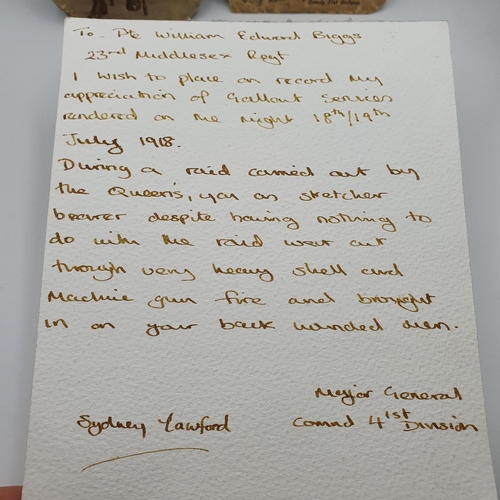 To - Pte William Edward Biggs
23rd Middlesex Regt
I wish to place on record my
appreciation of Gallant Services
rendered on the night 18th/19th
July 1918.
During a raid carried out by
the Queens, you as stretcher
bearer despite having nothing to
do with the raid went out
through very heavy shell and
Machine gun fire and brought
in on your back wounded men.
Major General
Sydney Lawford
Comnd 41st Division